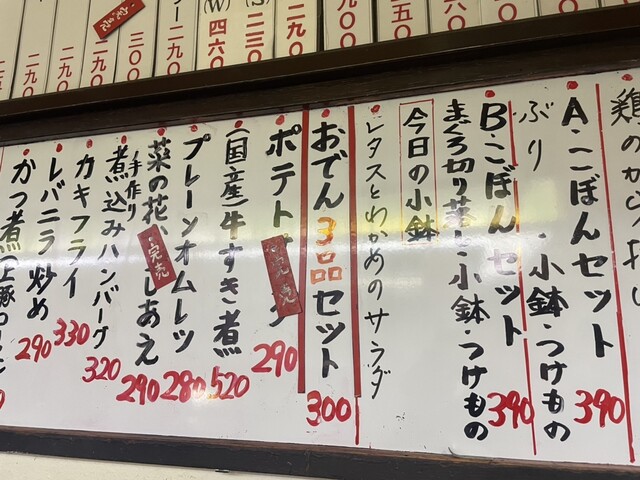 二九〇
二九〇
二九〇
三〇〇
二九〇
(W)
四六〇
(S)
二三〇
二九〇
鶏のから
A・こぼんセット
390
ぶり ・小鉢・つけもの
B・こぼんセット
390
まぐろ切り落とし・小鉢・つけもの
今日の小鉢
レタスとわかめのサラダ
おでん3品セット
300
ポテト
完売
290
(国産)牛すき煮
520
プレーンオムレツ
280
菜の花
完売
しあえ
290
手作り
煮込みハンバーグ
320
カキフライ
330
レバニラ炒め
290
かつ煮(上豚ロース